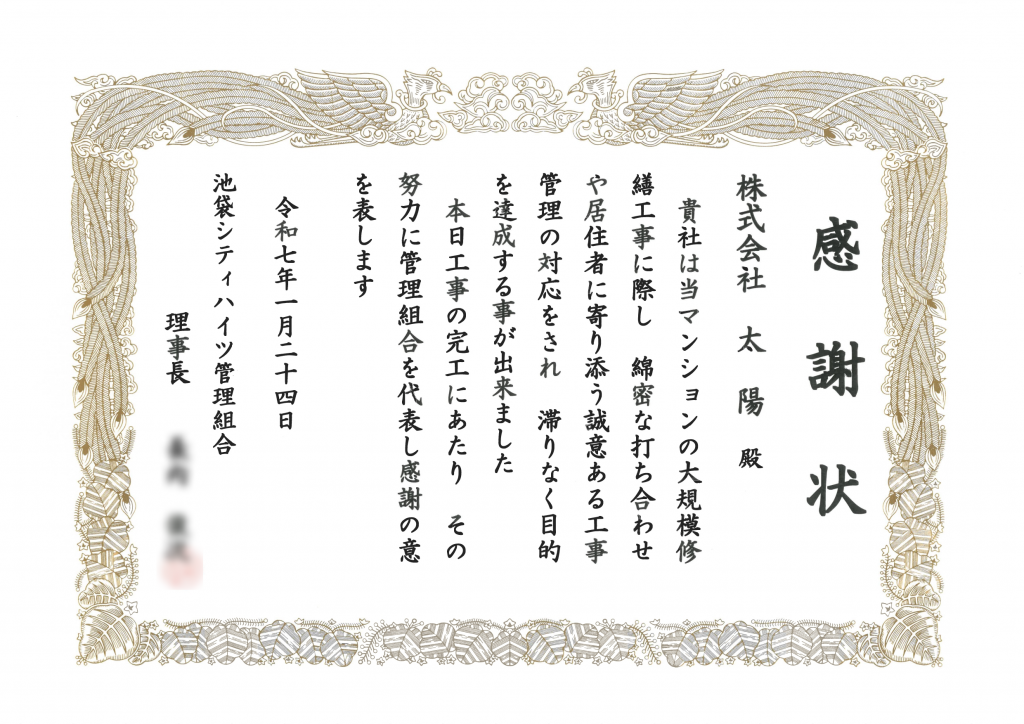 感謝状
株式会社　太陽　殿
貴社は当マンションの大規模修
繕工事に際し　綿密な打ち合わせ
や居住者に寄り添う誠意ある工事
管理の対応をされ　滞りなく目的
を達成する事が出来ました
本日工事の完工にあたり　その
努力に管理組合を代表し感謝の意
を表します
令和七年一月二十四日
池袋シティハイツ管理組合
理事長